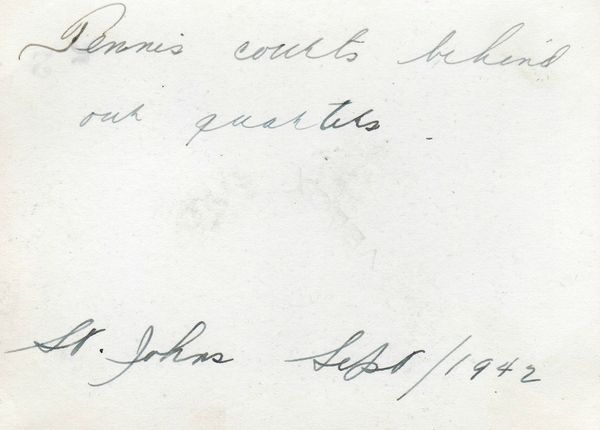 Tennis courts behind
our quarters.
St. Johns Sept/1942